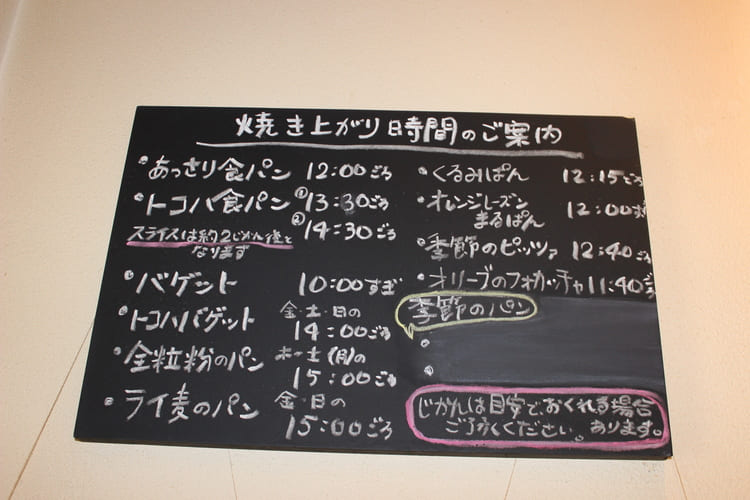 焼き上がり時間のご案内
•あっさり食パン 12:00ごろ
•トコハ食パン ①13:30ごろ
②14:30ごろ
スライスは約2じかん後と
なります
•バゲット 10:00すぎ
•トコハバゲット 金・土・日の
14:00ごろ
•全粒粉のパン 木・土(月)の
15:00ごろ
•ライ麦のパン 金・日の
15:00ごろ
•くるみぱん 12:15ごろ
•オレンジレーズン
まるぱん 12:00すぎ
•季節のピッツァ 12:40ごろ
•オリーブのフォカッチャ 11:40ごろ
季節のパン
じかんは目安で、おくれる場合
ございます。
あります。